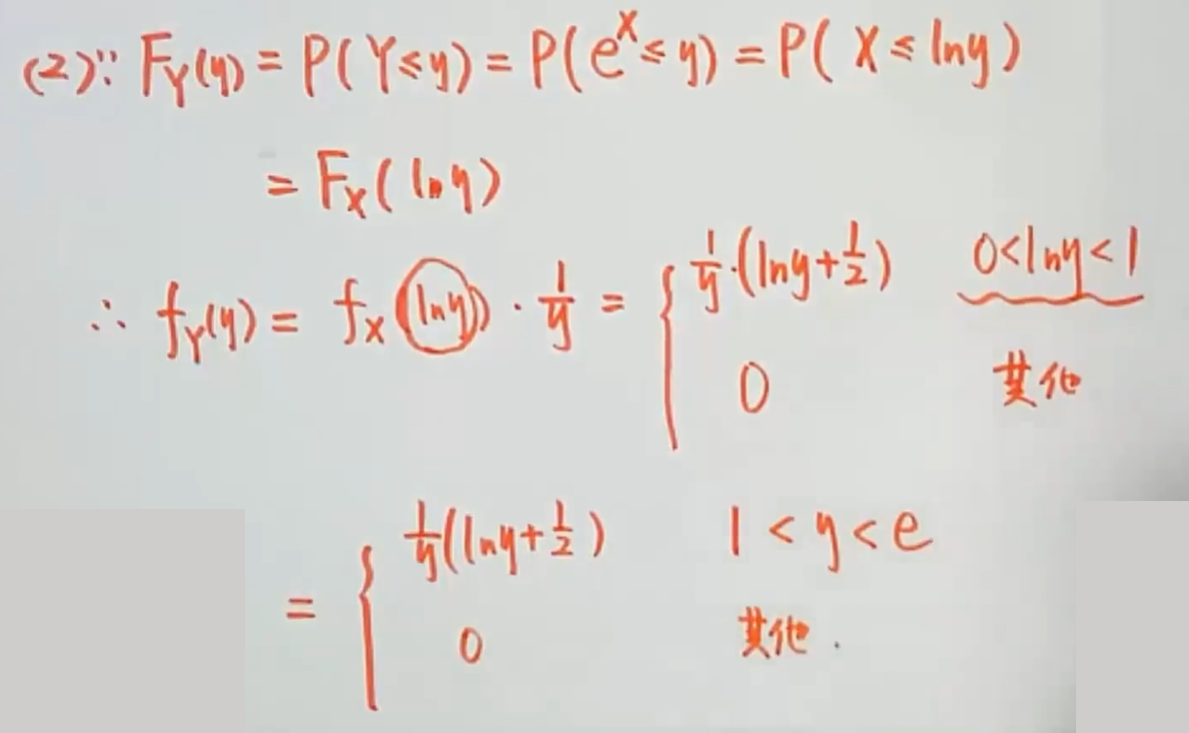 (2)∵ F_Y(y) = P(Y≤y) = P(e^x ≤ y) = P(X ≤ lny)
= F_X(lny)
∴ f_Y(y) = f_X(lny) · 1/y = { 1/y·(lny+1/2) 0<lny<1
0 其他
= { 1/y(lny+1/2) 1<y<e
0 其他.